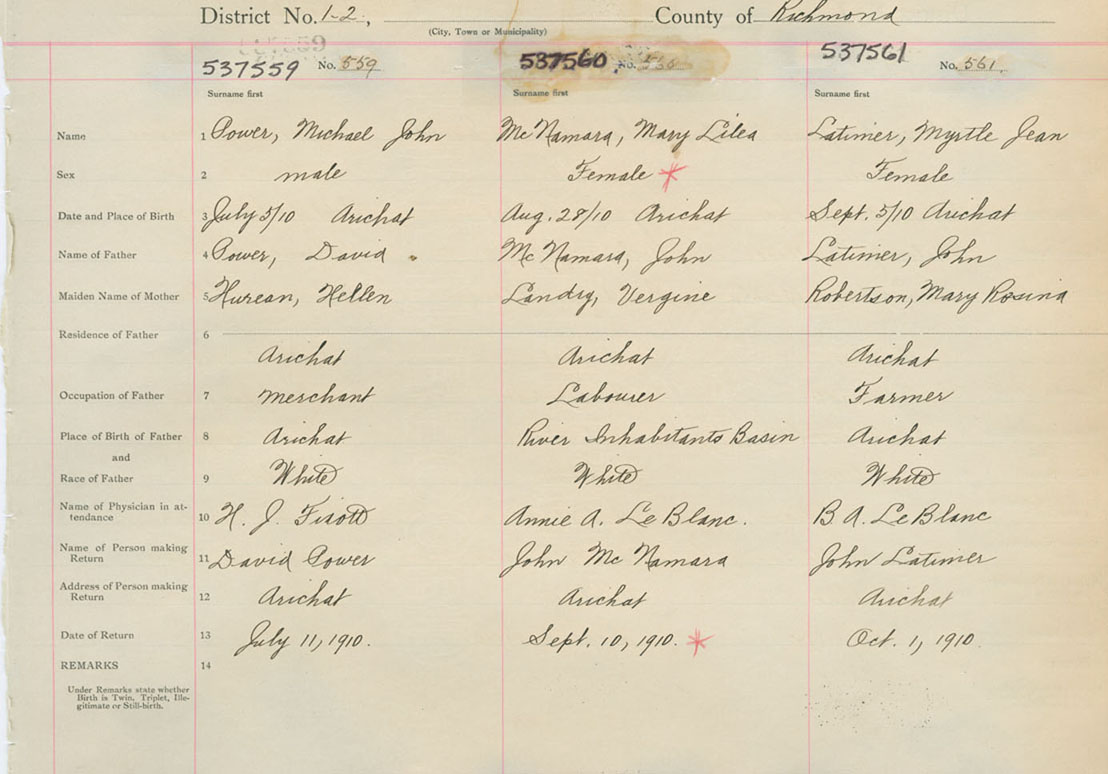 District No. 1-2, County of Richmond
(City, Town or Municipality)
537559 No. 559 537560 No. 537561 No. 561.
Surname first Surname first Surname first
Name 1 Power, Michael John McNamara, Mary Lilea Latimer, Myrtle Jean
Sex 2 male Female * Female
Date and Place of Birth 3 July 5/10 Arichat Aug. 28/10 Arichat Sept. 5/10 Arichat
Name of Father 4 Power, David McNamara, John Latimer, John
Maiden Name of Mother 5 Hurean, Hellen Landry, Vergine Robertson, Mary Rosina
Residence of Father 6
Arichat Arichat Arichat
Occupation of Father 7 merchant Labourer Farmer
Place of Birth of Father 8 Arichat River Inhabitants Basin Arichat
and
Race of Father 9 White White White
Name of Physician in at-
tendance 10 H. J. Fixott Annie A. LeBlanc. B A. LeBlanc
Name of Person making
Return 11 David Power John McNamara John Latimer
Address of Person making
Return 12 Arichat Arichat Arichat
Date of Return 13 July 11, 1910. Sept. 10, 1910. * Oct. 1, 1910.
REMARKS 14
Under Remarks state whether
Birth is Twin, Triplet, Ille-
gitimate or Still-birth.